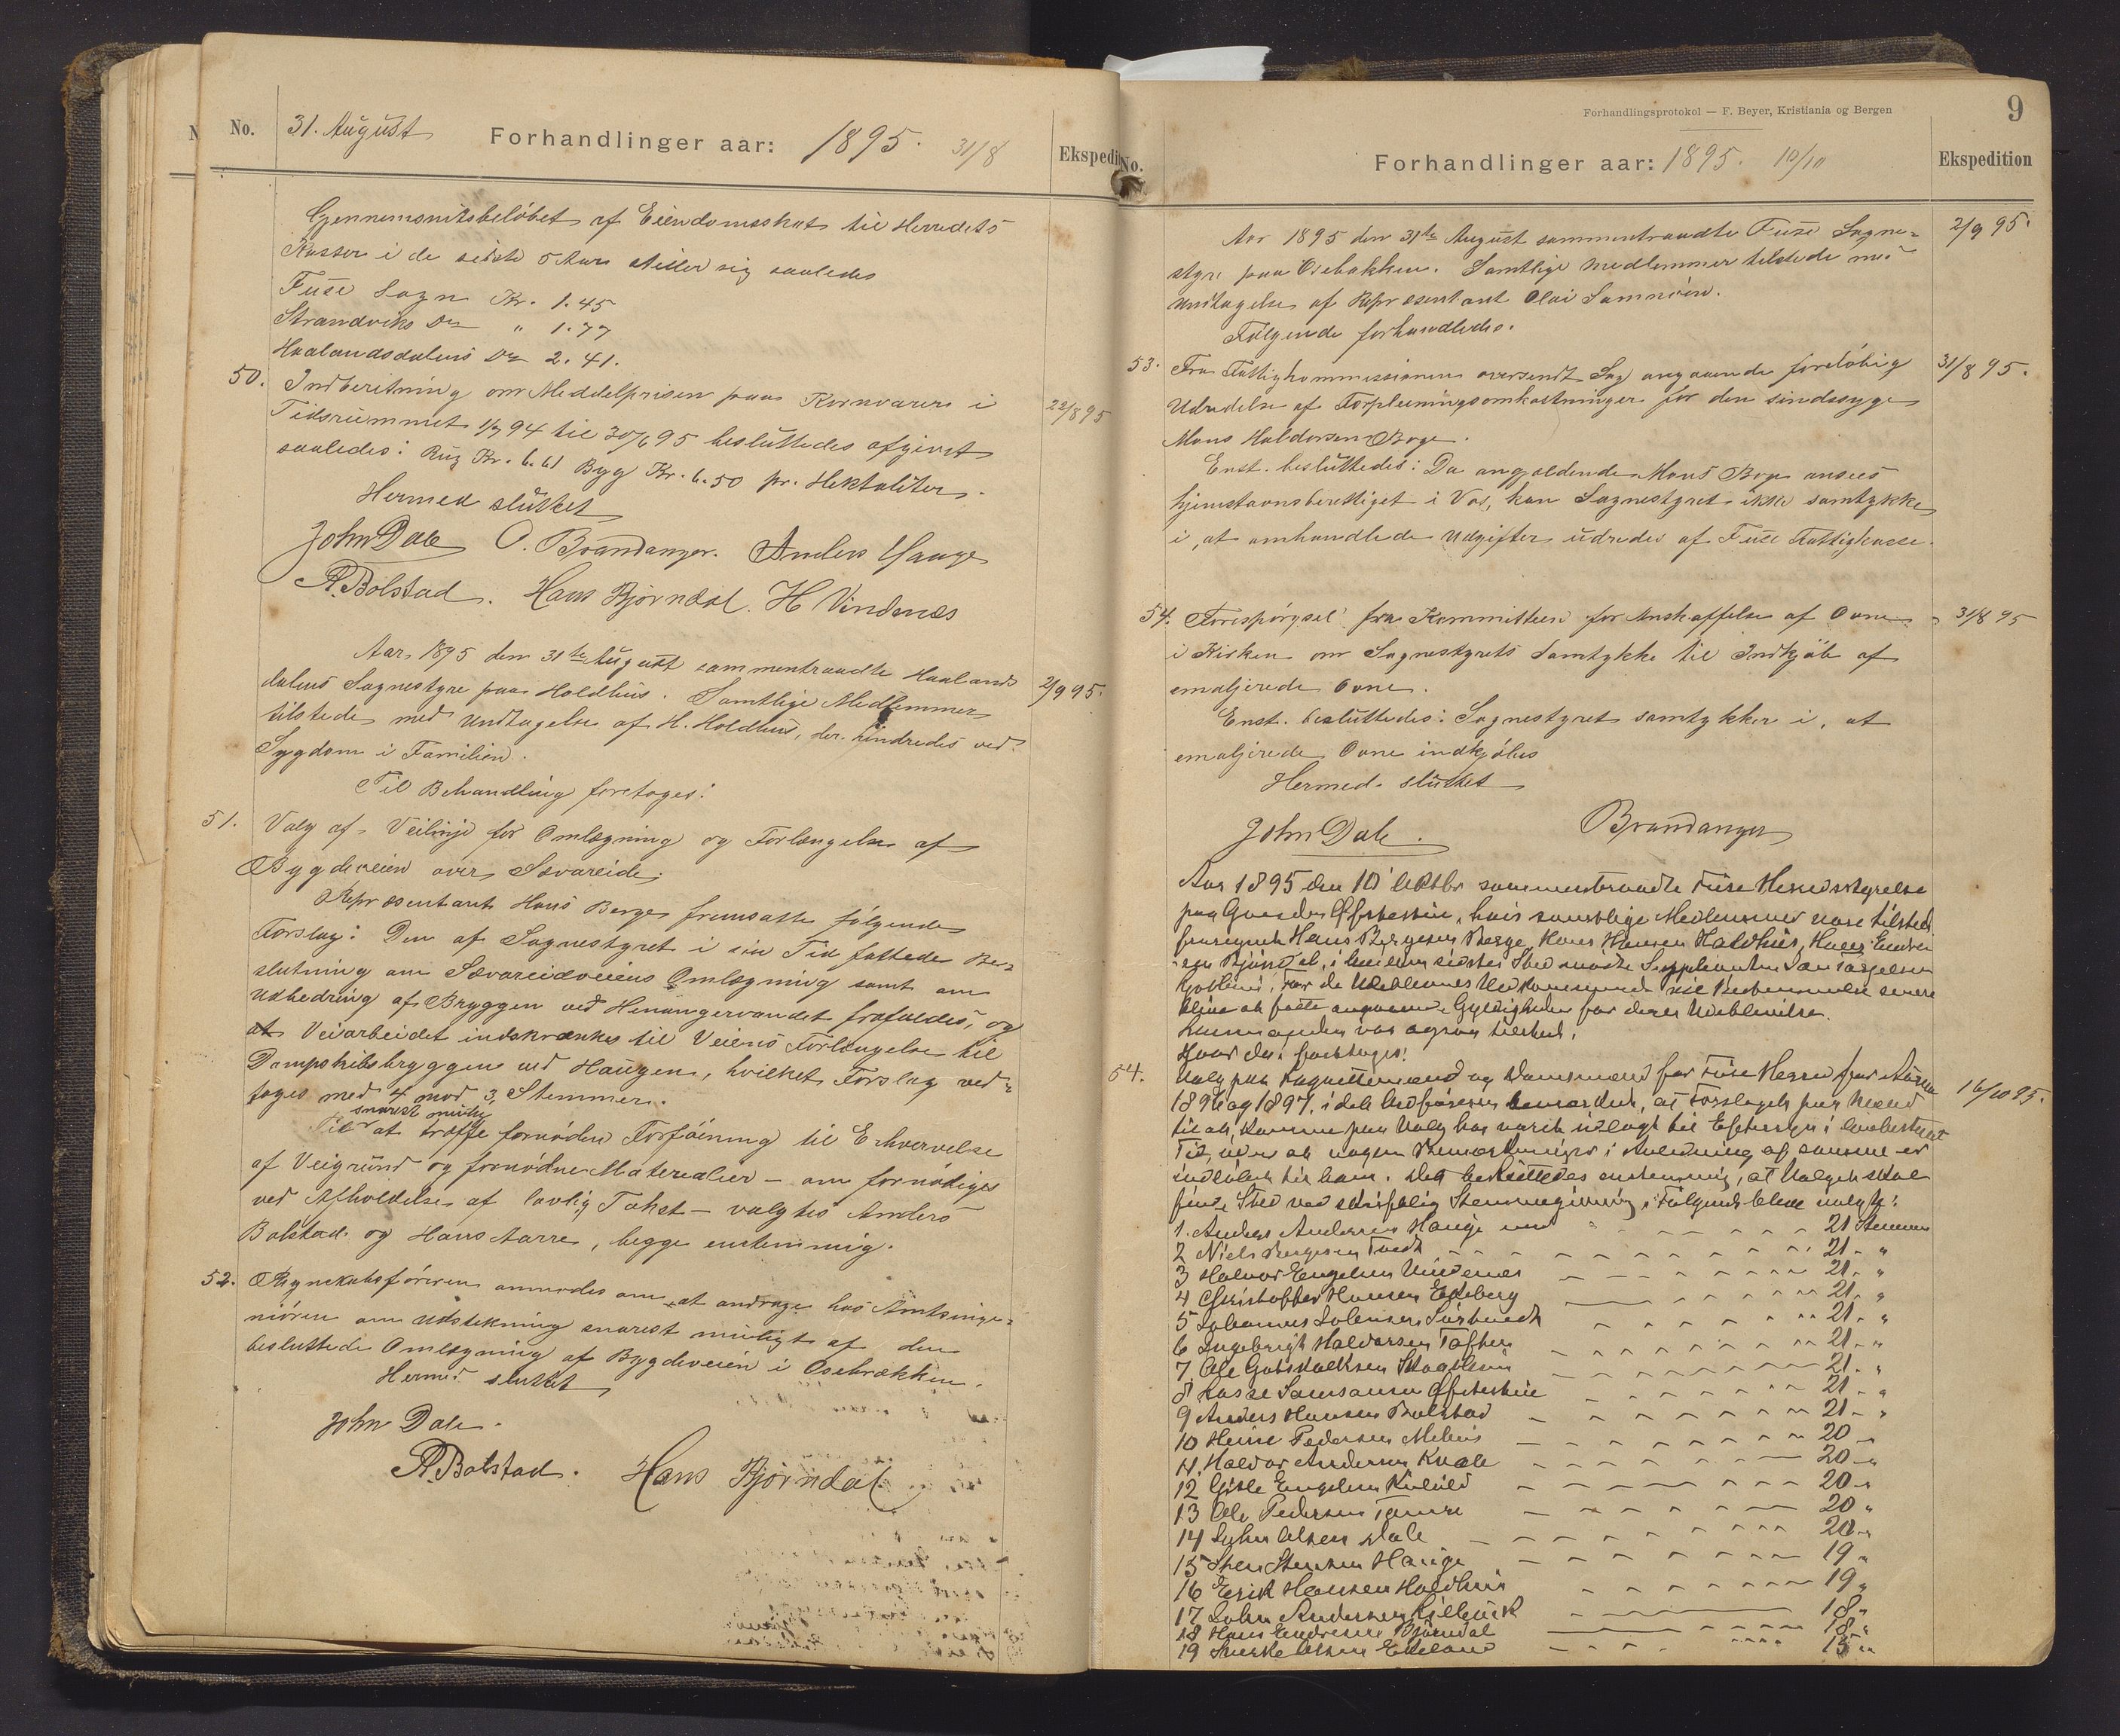 No. 31. August Forhandlinger aar: 1895. 31/8 Ekspedi
Gjennemsnitsbeløbet af Eiendomsskat til Herredets
Kasser i de sidste 5 Aar stiller sig saaledes
Fuse Sogn Kr. 1.45
Strandviks Do " 1.77
Haalandsdalens Do 2.41.
50. Indberetning om Middelprisen paa Kornvarer i 22/8 95
Tidsrummet 1/7 94 til 30/6 95 besluttedes afgivet
saaledes: Rug Kr. 6.61 Byg Kr. 6.50 pr. Hektoliter.
Hermed sluttet
John Dale O. Brandanger. Anders Hauge
A. Bolstad. Hans Bjørndal. H Vindenæs
Aar 1895 den 31te August sammentraadte Haalands
dalens Sognestyre paa Holdhus. Samtlige Medlemmer 2/9 95.
tilstede med Undtagelse af H. Holdhus, der hindredes ved
Sygdom i Familien.
Til Behandling foretoges:
51. Valg af Veilinje for Omlægning og Forlængelse af
Bygdeveien over Sævareide.
Repræsentant Hans Berge fremsatte følgende
Forslag: Den af Sognestyret i sin Tid fattede Be-
slutning om Sævareidveiens Omlægning samt om
Udbedring af Bryggen ved Henangervandet frafaldes, og
at Veiarbeidet indskrænkes til Veiens Forlængelse til
Dampskibsbryggen ved Haugen, hvilket Forslag ved-
toges med 4 mod 3 Stemmer.
snarest mulig
Til at træffe fornøden Forføining til Erhvervelse
af Veigrund og fornødne Materialier - om fornødiges
ved Afholdelse af lovlig Takst - valgtes Anders
Bolstad og Hans Aarre, begge enstemmig.
52. Regnskabsføreren anmodes om at andrage hos Amtsinge-
niøren om Udstikning snarest muligt af den
besluttede Omlægning af Bygdeveien i Osebrækken.
Hermed sluttet
John Dale.
A. Bolstad. Hans Bjørndal
Forhandlingsprotokol — F. Beyer, Kristiania og Bergen 9
No. Forhandlinger aar: 1895. 10/10 Ekspedition
Aar 1895 den 31te August sammentraadte Fuse Sogne- 2/9 95.
styre paa Osebakken. Samtlige Medlemmer tilstede med
Undtagelse af Repræsentant Olai Samnøen.
Følgende forhandledes.
53. Fra Fattigkommissionen oversendt Sag angaaende foreløbig 31/8 95.
Udredelse af Forpleiningsomkostninger for den sindssyge
Mons Haldorsen Boge.
Enst. besluttedes: Da angjældende Mons Boge ansees
hjemstavnsberettiget i Vos, kan Sognestyret ikke samtykke
i, at omhandlede Udgifter udredes af Fuse Fattigkasse.
54. Forespørgsel fra Kommitteen for Anskaffelse af Ovne 31/8 95
i Kirken om Sognestyrets Samtykke til Indkjøb af
emaljerede Ovne.
Enst. besluttedes: Sognestyret samtykker i, at
emaljerede Ovne indkjøbes
Hermed sluttet
John Dale. Brandanger
Aar 1895 den 10 Oktbr sammentraadte Fuse Herredsstyrelse
paa Gaarden , hvis samtlige Medlemmer vare tilsted
Hans Berge, Hans Hansen Holdhus, Hans Endre
sen Bjørndal, i hvilken sidstes Sted mødte Suppleanten
for de Udeblevnes Vedkommende vil senere
blive at fatte angaaende Gyldigheden for deres Udeblivelse.
var ogsaa tilsted.
Hvor da foretoges:
54. Valg paa Lagrettemænd og Domsmænd for Fuse Herred for Aarene 16/10 95.
1896 og 1897, i bemærkes, at Forslaget paa Mænd
til at komme paa Valg har været udlagt til Eftersyn i lovbestemt
Tid, uden at nogen Bemærkninger i Anledning af samme er
indløbet til ham. Det besluttedes enstemmig, at Valget skal
finde Sted ved skriftlig Stemmegivning. Følgende bleve valgte:
1. Anders Andersen Hauge med 21 Stemmer
2 Niels Tvedt 21 "
3 Halvor Engelsen Vindenes 21 "
4 Christoffer Hansen Eikeberg 21 "
5 Johannes Johansen 21 "
6 Ingebrigt Haldorsen 21 "
7 Ole 21 "
8 Lasse Samsonsen 21 "
9 Anders Hansen Bolstad 21 "
10 Peder­sen 20 "
11. Haldor Andersen Kvale 20 "
12 Gitle Engelsen 20 "
13 Ole Pedersen 20 "
14 John Olsen Dale 20 "
15 Sten Stensen Hauge 19 "
16 Erik Hansen Holdhus 19 "
17 John Andersen 18 "
18 Hans Endresen Bjørndal 18 "
19 Olsen Eikeland 15 "